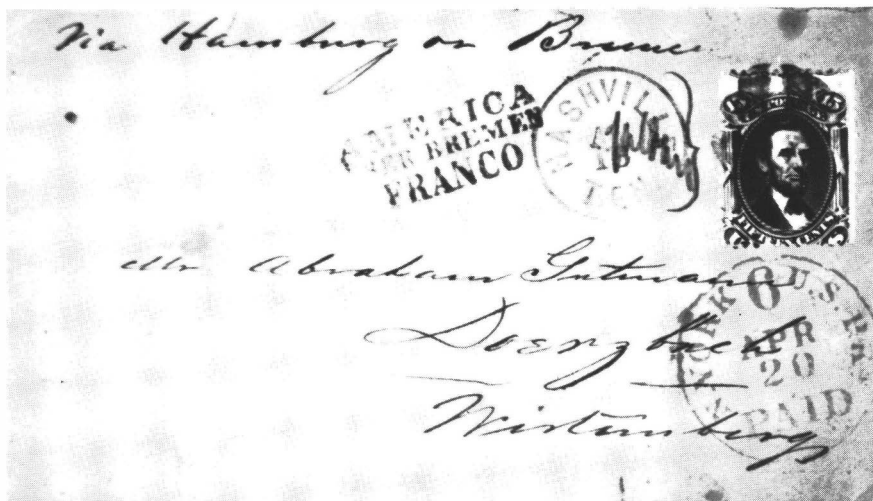 Via Hamburg or Bremen
AMERICA
PER BREMEN
FRANCO
NASHVILLE
TEN
15 15
Mr Abraham Gutmann
Doerzbach
Wirtemberg
YORK 6 U.S. PKT
APR
20
PAID